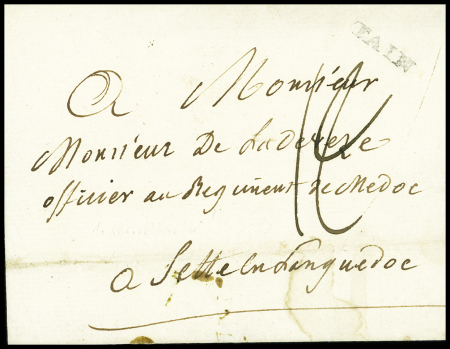 TAIN
A Monsieur
Monsieur De Ladereze
officier au Regiment de Medoc
a Sette en Languedoc